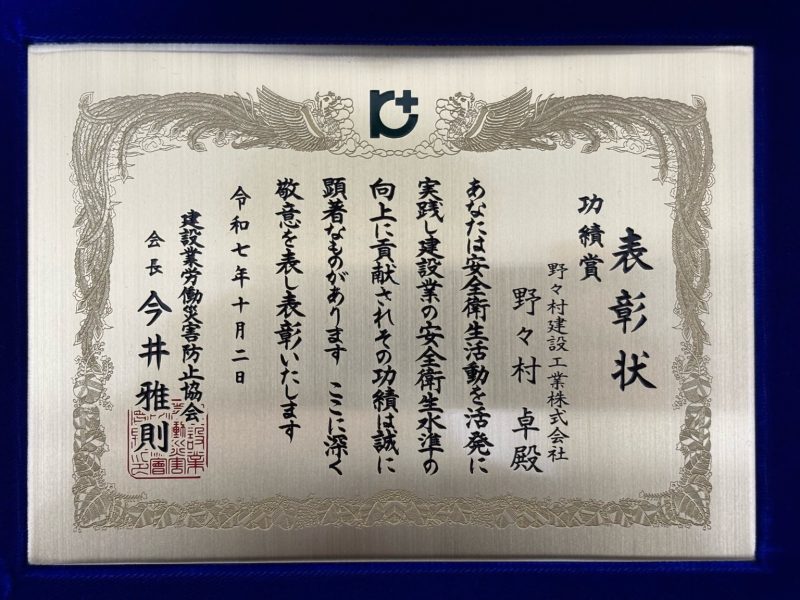 表彰状
功績賞
野々村建設工業株式会社
野々村 卓殿
あなたは安全衛生活動を活発に
実践し建設業の安全衛生水準の
向上に貢献されその功績は誠に
顕著なものがあります ここに深く
敬意を表し表彰いたします
令和七年十月二日
建設業労働災害防止協会
会長 今井雅則